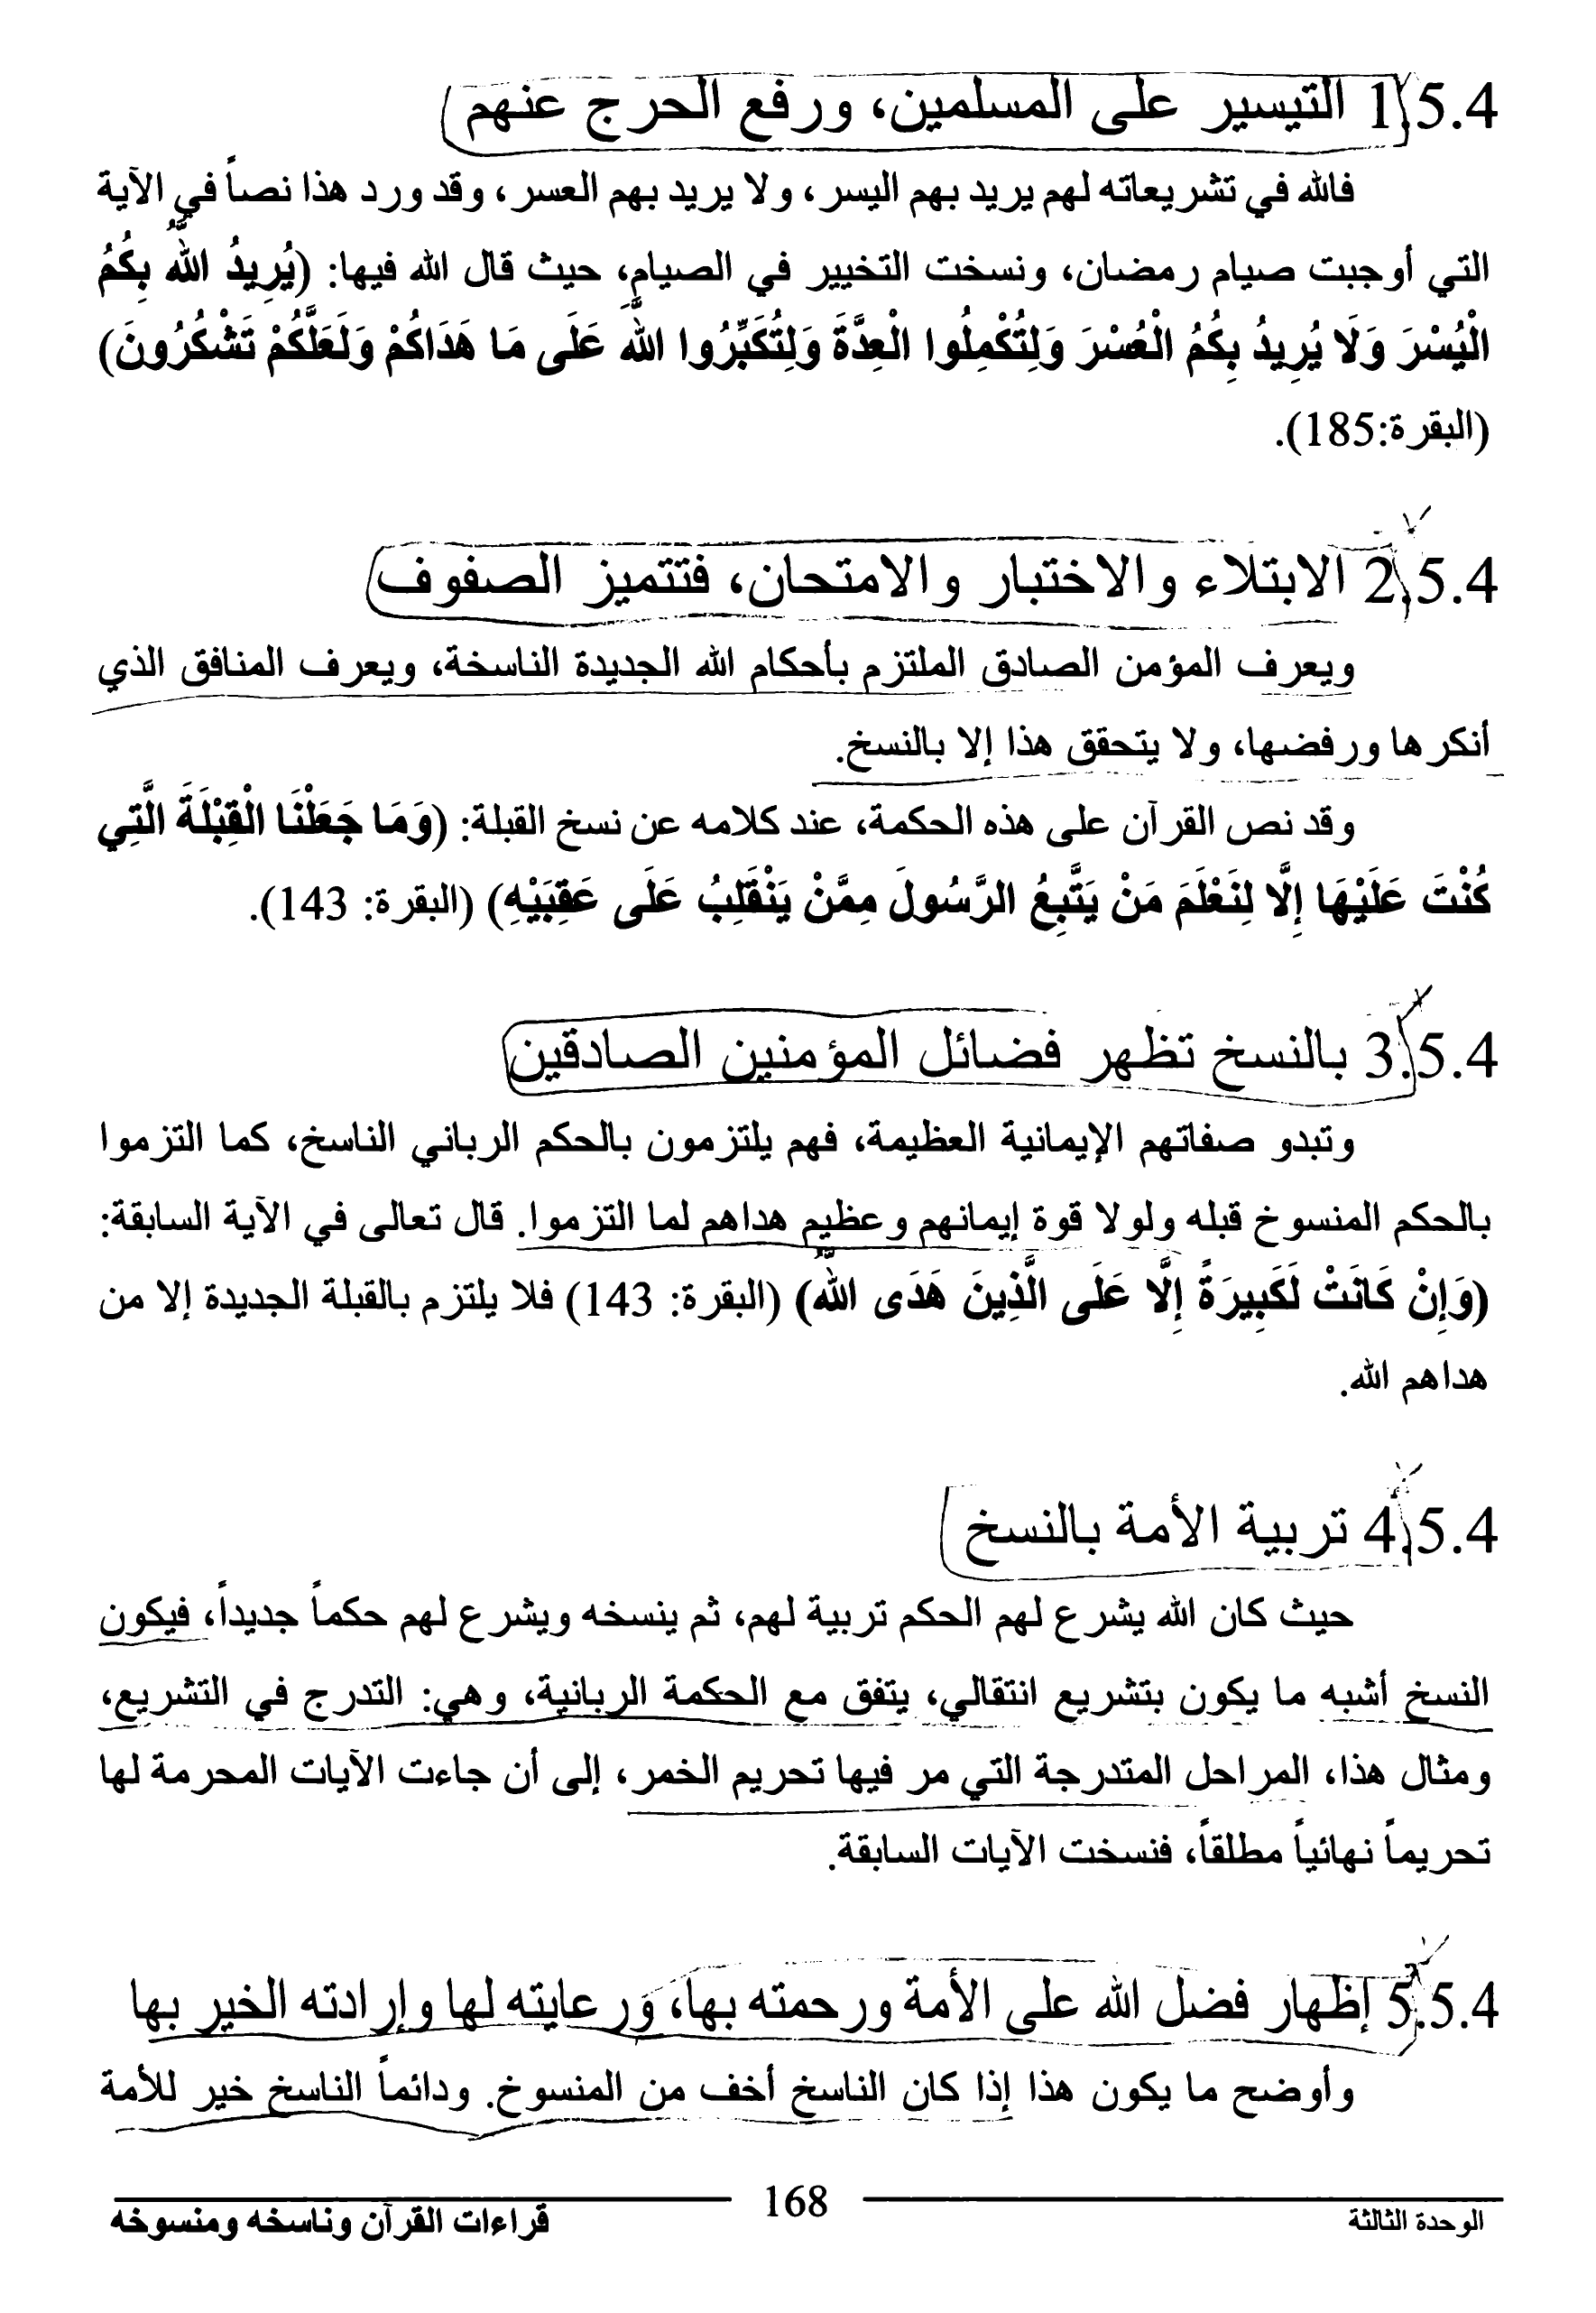 1.5.4 التيسير على المسلمين، ورفع الحرج عنهم
فالله في تشريعاته لهم يريد بهم اليسر، ولا يريد بهم العسر، وقد ورد هذا نصاً في الآية
التي أوجبت صيام رمضان، ونسخت التخيير في الصيام، حيث قال الله فيها: (يُرِيدُ اللَّهُ بِكُمُ
الْيُسْرَ وَلَا يُرِيدُ بِكُمُ الْعُسْرَ وَلِتُكْمِلُوا الْعِدَّةَ وَلِتُكَبِّرُوا اللَّهَ عَلَى مَا هَدَاكُمْ وَلَعَلَّكُمْ تَشْكُرُونَ)
(البقرة:185).
2.5.4 الابتلاء والاختبار والامتحان، فتتميز الصفوف
ويعرف المؤمن الصادق الملتزم بأحكام الله الجديدة الناسخة، ويعرف المنافق الذي
أنكرها ورفضها، ولا يتحقق هذا إلا بالنسخ.
وقد نص القرآن على هذه الحكمة، عند كلامه عن نسخ القبلة: (وَمَا جَعَلْنَا الْقِبْلَةَ الَّتِي
كُنْتَ عَلَيْهَا إِلَّا لِنَعْلَمَ مَنْ يَتَّبِعُ الرَّسُولَ مِمَّنْ يَنْقَلِبُ عَلَى عَقِبَيْهِ) (البقرة: 143).
3.5.4 بالنسخ تظهر فضائل المؤمنين الصادقين
وتبدو صفاتهم الإيمانية العظيمة، فهم يلتزمون بالحكم الرباني الناسخ، كما التزموا
بالحكم المنسوخ قبله ولولا قوة إيمانهم وعظيم هداهم لما التزموا. قال تعالى في الآية السابقة:
(وَإِنْ كَانَتْ لَكَبِيرَةً إِلَّا عَلَى الَّذِينَ هَدَى اللَّهُ) (البقرة: 143) فلا يلتزم بالقبلة الجديدة إلا من
هداهم الله.
4.5.4 تربية الأمة بالنسخ
حيث كان الله يشرع لهم الحكم تربية لهم، ثم ينسخه ويشرع لهم حكماً جديداً، فيكون
النسخ أشبه ما يكون بتشريع انتقالي، يتفق مع الحكمة الربانية، وهي: التدرج في التشريع،
ومثال هذا، المراحل المتدرجة التي مر فيها تحريم الخمر، إلى أن جاءت الآيات المحرمة لها
تحريماً نهائياً مطلقاً، فنسخت الآيات السابقة.
5.5.4 إظهار فضل الله على الأمة ورحمته بها، ورعايته لها وإرادته الخير بها
وأوضح ما يكون هذا إذا كان الناسخ أخف من المنسوخ. ودائماً الناسخ خير للأمة
الوحدة الثالثة 168 قراءات القرآن وناسخه ومنسوخه